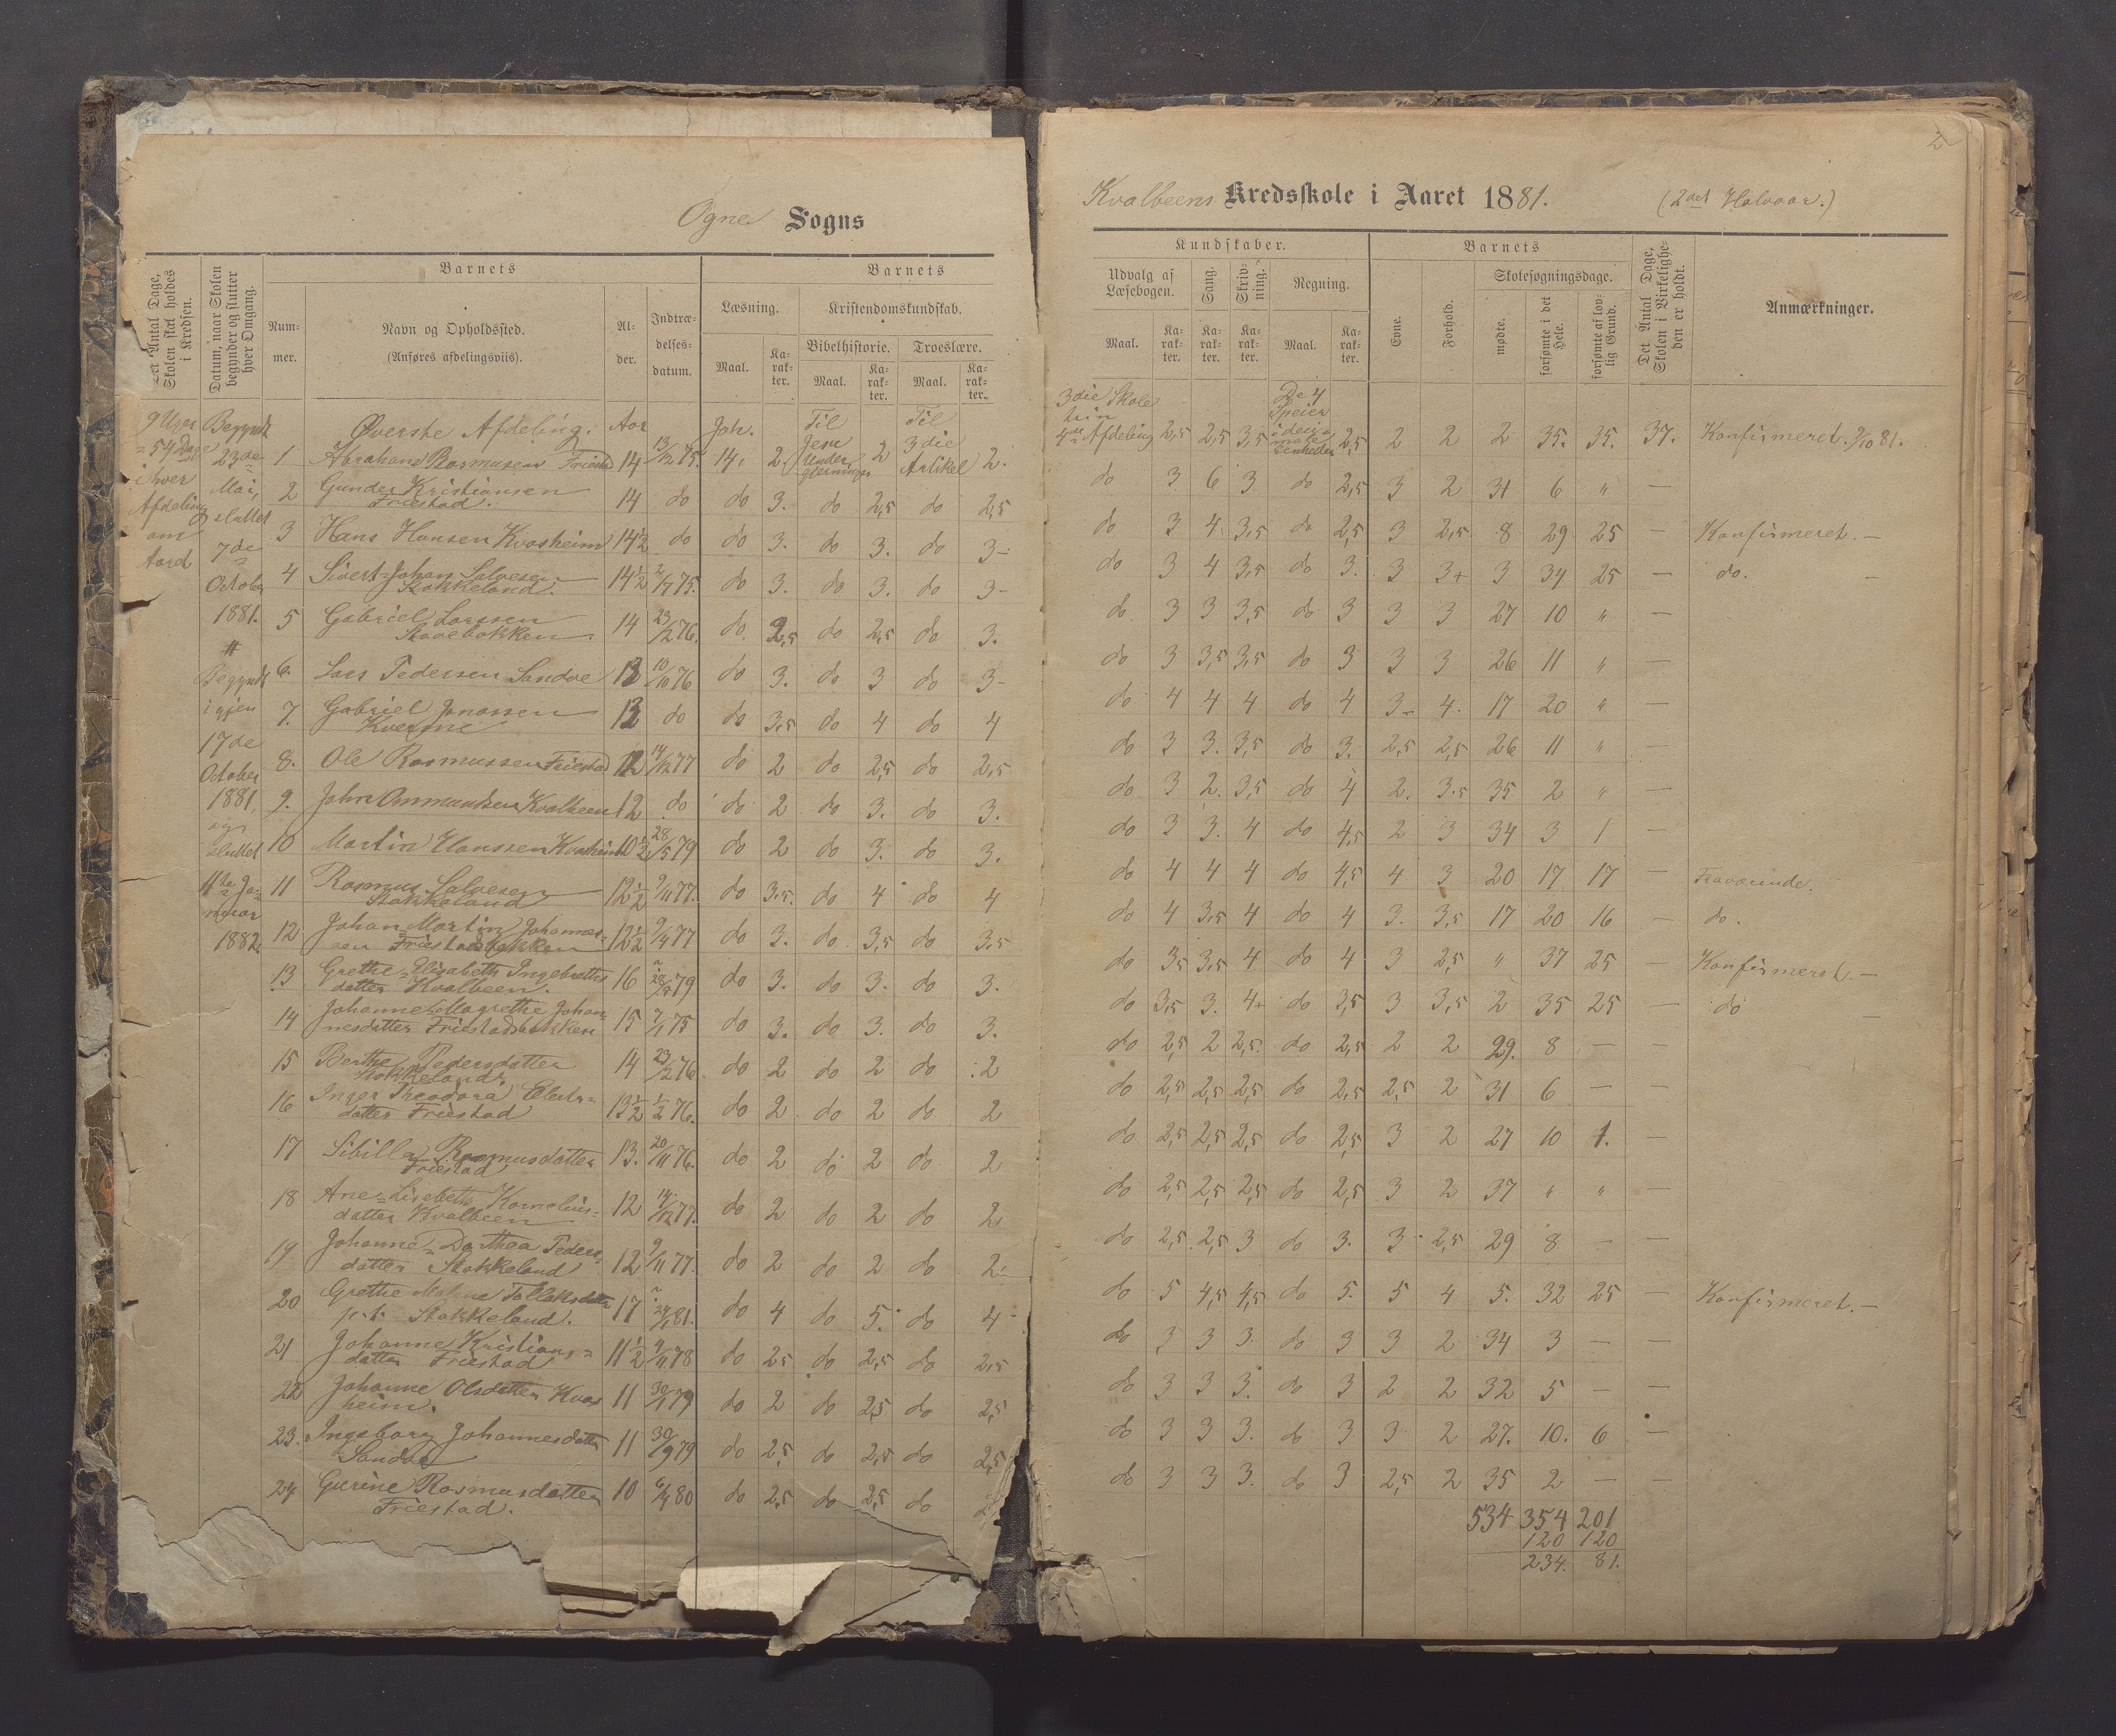 Ogne Sogns
Det Antal Dage, Skolen skal holdes i Kredsen.
Datum, naar Skolen begynder og slutter hver Omgang.
Barnets
Barnets
Num-
mer.
Navn og Opholdssted.
(Anføres afdelingsviis).
Al-
der.
Indtræ-
delses-
datum.
Læsning.
Kristendomskundskab.
Bibelhistorie. Troeslære.
Maal. Ka-rak-ter. Maal. Ka-rak-ter. Maal. Ka-rak-ter.
9 Uger
= 54 Dage
i hver
Afdeling
Begyndt
23de
Mai,
sluttet
7de
October
1881.
#
Begyndt
igjen
17de
October
1881,
og
sluttet
11te Ja-
nuar
1882.
Øverste Afdeling. Aar Joh. Til Til
1 Abraham Rasmussen Friestad 14 13/12 75. 14, 2. Jesu Under 2 3die Artikel 2.
2 Gunder Kristiansen
Friestad. 14 do do 3. do 2,5 do 2,5
3 Hans Hansen Kvasheim 14½ do do 3. do 3. do 3-
4 Sivert Johan Salvesen
Stokkeland. 14½ 2/7 75. do 3. do 3. do 3-
5 Gabriel Larssen
Stavebakken. 14 23/2 76. do 2,5 do 2,5 do 3.
6. Lars Pedersen Sandve 13 10/10 76 do 3. do 3 do 3-
7. Gabriel Jonassen
Kverme 13 do do 3,5 do 4 do 4
8. Ole Rasmussen Friestad 12 14/12 77 do 2 do 2,5 do 2,5
9. John Ommundsen Kvalbeen 12 do do 2 do 3. do 3.
10 Martin Hanssen Kvasheim 10½ 28/5 79 do 2 do 3. do 3.
11 Rasmus Salvesen
Stokkeland 12½ 9/11 77. do 3,5. do 4 do 4
12 Johan Martin Johannes-
sen Friestadbakken 12½ 9/4 77 do 3. do 3,5 do 3,5
13 Grethe Elisabeth Ingebretts-
datter Kvalbeen. 16 79 do 3. do 3. do 3.
14 Johanne Magrethe Johan-
nesdatter Friestadbakken 15 7/1 75 do 3. do 3. do 3.
15 Berthe Pedersdatter
Stokkeland. 14 23/2 76 do 2 do 2 do 2
16 Inger Theodora Elerts-
datter Friestad 13½ ½ 76. do 2 do 2 do 2
17 Sibilla Rasmusdatter
Friestad 13. 20/11 76. do 2 do 2 do 2
18 Ane-Lisebeth Kornelius-
datter Kvalbeen 12 14/12 77. do 2 do 2 do 2
19 Johanne-Dorthea Peders-
datter Stokkeland 12 9/11 77. do 2 do 2 do 2-
20 Grethe Tollaksdatter
p.t. Stokkeland. 17 24/1 81. do 4 do 5. do 4
21 Johanne Kristians-
datter Friestad 11½ 4/11 78 do 2,5 do 2,5 do 2,5
22 Johanne Olsdatter Kvas
heim. 11 30/1 79 do 2 do 2,5 do 2,5
23. Ingeborg Johannesdatter
Sandve 11 30/9 79 do 2,5 do 2,5 do 2,5
24 Gurine Rasmusdatter
Friestad. 10 6/4 80 do 2,5 do 2,5 do
2
Kvalbeens Kredsskole i Aaret 1881. (2det Halvaar.)
Kundskaber.
Barnets
Det Antal Dage, Skolen i Virkelighe-den er holdt.
Anmærkninger.
Udvalg af Læsebogen. Sang. Skriv-ning. Regning.
Evne. Forhold. Skolesøgningsdage.
Maal. Ka-rak-ter. Ka-rak-ter. Ka-rak-ter. Maal. Ka-rak-ter. mødte. forsømte i det Hele. forsømte af lov-lig Grund.
3die Skole
trin
4de Afdeling 2,5 2,5 3,5 De 4 Speier i deci-male Eenheder 2,5 2 2 2 35. 35. 37. Konfirmeret. 9/10 81.
do 3 6 3 do 2,5 3 2 31 6 " —
do 3 4. 3,5 do 2,5 3 2,5 8 29 25 — Konfirmeret. —
do 3 4 3,5 do 3. 3 3+ 3 34 25 — do. —
do 3 3 3,5 do 3 3 3 27 10 " —
do 3 3,5 3,5 do 3 3 3 26 11 " —
do 4 4 4 do 4 3- 4. 17 20 " —
do 3 3. 3,5 do 3. 2,5 2,5 26 11 " —
do 3 2. 3,5 do 4 2. 3,5 35 2 " —
do 3 3. 4 do 4,5 2 3 34 3 1 —
do 4 4 4 do 4,5 4 3 20 17 17 — Fraværende.
do 4 3,5 4 do 4 3. 3,5 17 20 16 — do.
do 3,5 3,5 4 do 4 3 2,5 " 37 25 — Konfirmeret. —
do 3,5 3. 4+ do 3,5 3 3,5 2 35 25 — do —
do 2,5 2 2,5. do 2,5 2 2 29. 8 — —
do 2,5 2,5 2,5 do 2,5 2,5 2 31 6 — —
do 2,5 2,5 2,5 do 2,5 3 2 27 10 1. —
do 2,5 2,5 2,5 do 2,5 3 2 37 " " —
do 2,5 2,5 3 do 3. 3 2,5 29 8 — —
do 5 4,5 4,5 do 5. 5 4 5. 32 25 — Konfirmeret. —
do 3 3 3. do 3 3 2 34 3 — —
do 3 3 3. do 3 2 2 32 5 — —
do 3 3 3. do 3 3 2 27. 10. 6 —
do 3 3 3. do 3 2,5 2 35 2 — —
534 354 201
120 120
234. 81.